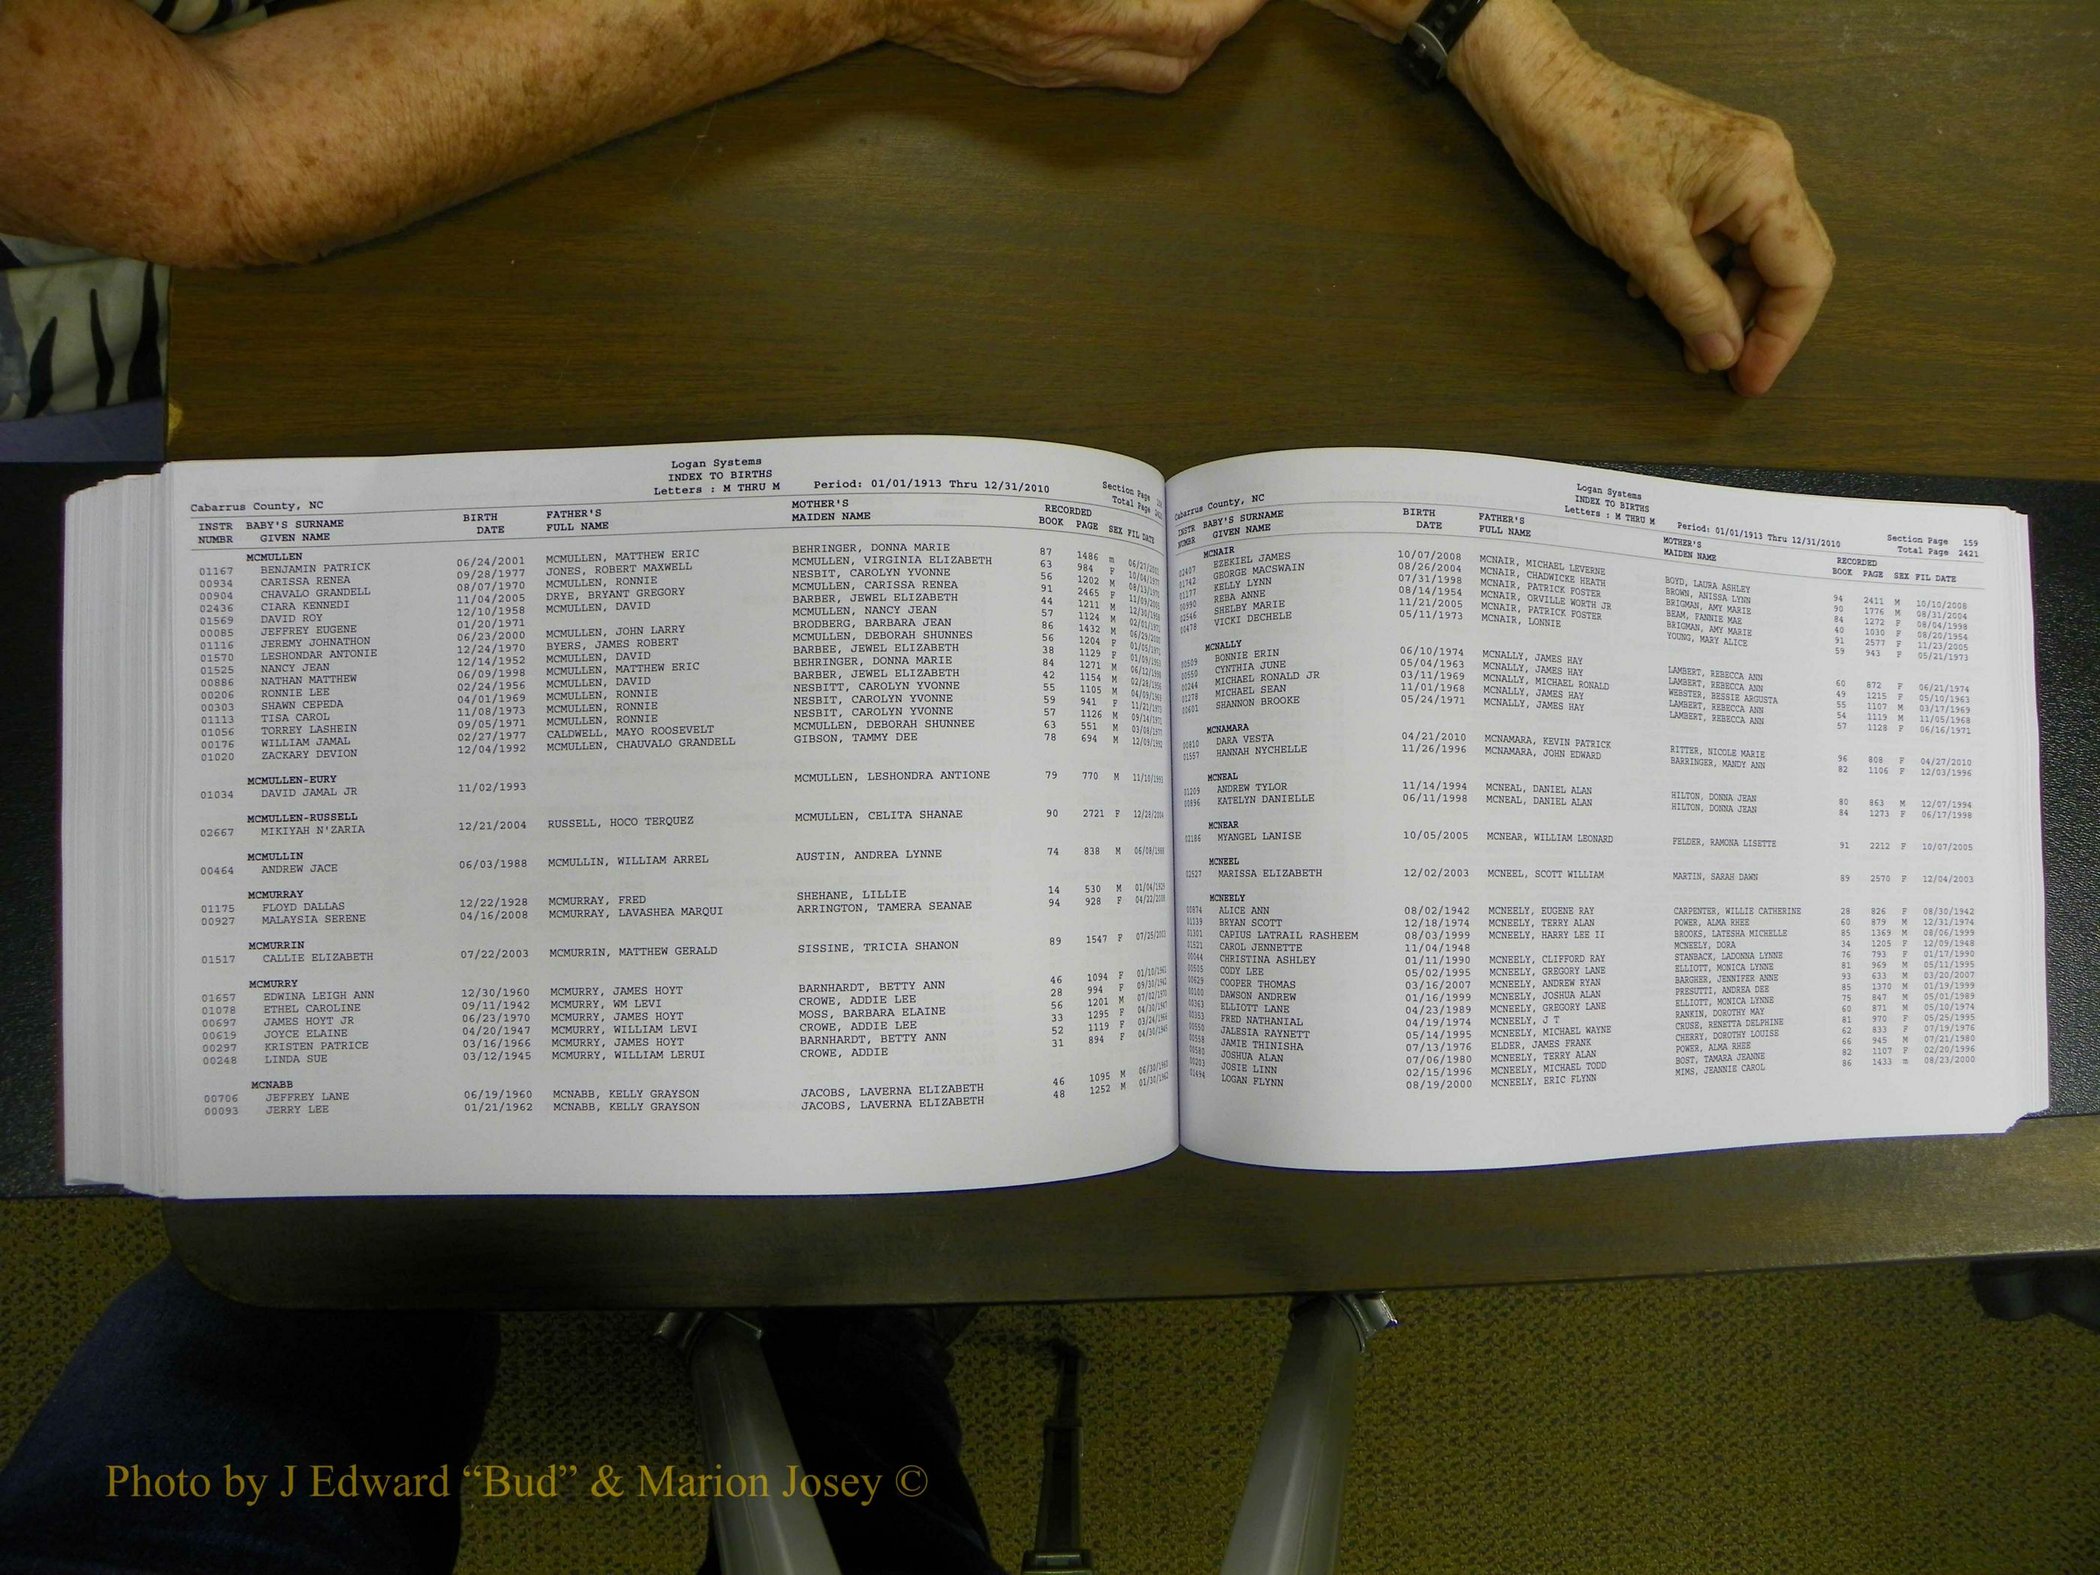 Logan Systems
INDEX TO BIRTHS
Letters : M THRU M Period: 01/01/1913 Thru 12/31/2010
Section Page
Total Page
Cabarrus County, NC
INSTR BABY'S SURNAME BIRTH FATHER'S MOTHER'S RECORDED
NUMBR GIVEN NAME DATE FULL NAME MAIDEN NAME BOOK PAGE SEX FIL DATE
MCMULLEN
01167 BENJAMIN PATRICK 06/24/2001 MCMULLEN, MATTHEW ERIC BEHRINGER, DONNA MARIE 87 1486 m 06/27/2001
00934 CARISSA RENEA 09/28/1977 JONES, ROBERT MAXWELL MCMULLEN, VIRGINIA ELIZABETH 63 984 F 10/04/1977
00904 CHAVALO GRANDELL 08/07/1970 MCMULLEN, RONNIE NESBIT, CAROLYN YVONNE 56 1202 M 08/13/1970
02436 CIARA KENNEDI 11/04/2005 DRYE, BRYANT GREGORY MCMULLEN, CARISSA RENEA 91 2465 F 11/09/2005
01569 DAVID ROY 12/10/1958 MCMULLEN, DAVID BARBER, JEWEL ELIZABETH 44 1211 M 12/30/1958
00085 JEFFREY EUGENE 01/20/1971 MCMULLEN, NANCY JEAN 57 1124 M 02/01/1971
01116 JEREMY JOHNATHON 06/23/2000 MCMULLEN, JOHN LARRY BRODBERG, BARBARA JEAN 86 1432 M 06/29/2000
01570 LESHONDAR ANTONIE 12/24/1970 BYERS, JAMES ROBERT MCMULLEN, DEBORAH SHUNNES 56 1204 F 01/05/1971
01525 NANCY JEAN 12/14/1952 MCMULLEN, DAVID BARBEE, JEWEL ELIZABETH 38 1129 F 01/09/1953
00886 NATHAN MATTHEW 06/09/1998 MCMULLEN, MATTHEW ERIC BEHRINGER, DONNA MARIE 84 1271 M 06/12/1998
00206 RONNIE LEE 02/24/1956 MCMULLEN, DAVID BARBER, JEWEL ELIZABETH 42 1154 M 02/28/1956
00303 SHAWN CEPEDA 04/01/1969 MCMULLEN, RONNIE NESBITT, CAROLYN YVONNE 55 1105 M 04/09/1969
01113 TISA CAROL 11/08/1973 MCMULLEN, RONNIE NESBIT, CAROLYN YVONNE 59 941 F 11/21/1973
01056 TORREY LASHEIN 09/05/1971 MCMULLEN, RONNIE NESBIT, CAROLYN YVONNE 57 1126 M 09/14/1971
00176 WILLIAM JAMAL 02/27/1977 CALDWELL, MAYO ROOSEVELT MCMULLEN, DEBORAH SHUNNEE 63 551 M 03/08/1977
01020 ZACKARY DEVION 12/04/1992 MCMULLEN, CHAUVALO GRANDELL GIBSON, TAMMY DEE 78 694 M 12/09/1992
MCMULLEN-EURY
01034 DAVID JAMAL JR 11/02/1993 MCMULLEN, LESHONDRA ANTIONE 79 770 M 11/10/1993
MCMULLEN-RUSSELL
02667 MIKIYAH N'ZARIA 12/21/2004 RUSSELL, HOCO TERQUEZ MCMULLEN, CELITA SHANAE 90 2721 F 12/28/2004
MCMULLIN
00464 ANDREW JACE 06/03/1988 MCMULLIN, WILLIAM ARREL AUSTIN, ANDREA LYNNE 74 838 M 06/08/1988
MCMURRAY
01175 FLOYD DALLAS 12/22/1928 MCMURRAY, FRED SHEHANE, LILLIE 14 530 M 01/04/1929
00927 MALAYSIA SERENE 04/16/2008 MCMURRAY, LAVASHEA MARQUI ARRINGTON, TAMERA SEANAE 94 928 F 04/22/2008
MCMURRIN
01517 CALLIE ELIZABETH 07/22/2003 MCMURRIN, MATTHEW GERALD SISSINE, TRICIA SHANON 89 1547 F 07/25/2003
MCMURRY
01657 EDWINA LEIGH ANN 12/30/1960 MCMURRY, JAMES HOYT BARNHARDT, BETTY ANN 46 1094 F 01/10/1961
01078 ETHEL CAROLINE 09/11/1942 MCMURRY, WM LEVI CROWE, ADDIE LEE 28 994 F 09/30/1942
00697 JAMES HOYT JR 06/23/1970 MCMURRY, JAMES HOYT MOSS, BARBARA ELAINE 56 1201 M 07/12/1970
00619 JOYCE ELAINE 04/20/1947 MCMURRY, WILLIAM LEVI CROWE, ADDIE LEE 33 1295 F 04/30/1947
00297 KRISTEN PATRICE 03/16/1966 MCMURRY, JAMES HOYT BARNHARDT, BETTY ANN 52 1119 F 03/24/1966
00248 LINDA SUE 03/12/1945 MCMURRY, WILLIAM LERUI CROWE, ADDIE 31 894 F 04/30/1945
MCNABB
00706 JEFFREY LANE 06/19/1960 MCNABB, KELLY GRAYSON JACOBS, LAVERNA ELIZABETH 46 1095 M 06/30/1960
00093 JERRY LEE 01/21/1962 MCNABB, KELLY GRAYSON JACOBS, LAVERNA ELIZABETH 48 1252 M 01/30/1962
Logan Systems
INDEX TO BIRTHS
Letters : M THRU M Period: 01/01/1913 Thru 12/31/2010
Section Page 159
Total Page 2421
Cabarrus County, NC
INSTR BABY'S SURNAME BIRTH FATHER'S MOTHER'S RECORDED
NUMBR GIVEN NAME DATE FULL NAME MAIDEN NAME BOOK PAGE SEX FIL DATE
MCNAIR
02407 EZEKIEL JAMES 10/07/2008 MCNAIR, MICHAEL LEVERNE BOYD, LAURA ASHLEY 94 2411 M 10/10/2008
01742 GEORGE MACSWAIN 08/26/2004 MCNAIR, CHADWICKE HEATH BROWN, ANISSA LYNN 90 1776 M 08/31/2004
01177 KELLY LYNN 07/31/1998 MCNAIR, PATRICK FOSTER BRIGMAN, AMY MARIE 84 1272 F 08/04/1998
00990 REBA ANNE 08/14/1954 MCNAIR, ORVILLE WORTH JR BEAM, FANNIE MAE 40 1030 F 08/20/1954
02546 SHELBY MARIE 11/21/2005 MCNAIR, PATRICK FOSTER BRIGMAN, AMY MARIE 91 2577 F 11/23/2005
00478 VICKI DECHELE 05/11/1973 MCNAIR, LONNIE YOUNG, MARY ALICE 59 943 F 05/21/1973
MCNALLY
00509 BONNIE ERIN 06/10/1974 MCNALLY, JAMES HAY LAMBERT, REBECCA ANN 60 872 F 06/21/1974
00550 CYNTHIA JUNE 05/04/1963 MCNALLY, JAMES HAY LAMBERT, REBECCA ANN 49 1215 F 05/10/1963
00244 MICHAEL RONALD JR 03/11/1969 MCNALLY, MICHAEL RONALD WEBSTER, BESSIE ARGUSTA 55 1107 M 03/17/1969
01278 MICHAEL SEAN 11/01/1968 MCNALLY, JAMES HAY LAMBERT, REBECCA ANN 54 1119 M 11/05/1968
00601 SHANNON BROOKE 05/24/1971 MCNALLY, JAMES HAY LAMBERT, REBECCA ANN 57 1128 F 06/16/1971
MCNAMARA
00810 DARA VESTA 04/21/2010 MCNAMARA, KEVIN PATRICK RITTER, NICOLE MARIE 96 808 F 04/27/2010
01557 HANNAH NYCHELLE 11/26/1996 MCNAMARA, JOHN EDWARD BARRINGER, MANDY ANN 82 1106 F 12/03/1996
MCNEAL
01209 ANDREW TYLOR 11/14/1994 MCNEAL, DANIEL ALAN HILTON, DONNA JEAN 80 863 M 12/07/1994
00896 KATELYN DANIELLE 06/11/1998 MCNEAL, DANIEL ALAN HILTON, DONNA JEAN 84 1273 F 06/17/1998
MCNEAR
02186 MYANGEL LANISE 10/05/2005 MCNEAR, WILLIAM LEONARD FELDER, RAMONA LISETTE 91 2212 F 10/07/2005
MCNEEL
02527 MARISSA ELIZABETH 12/02/2003 MCNEEL, SCOTT WILLIAM MARTIN, SARAH DAWN 89 2570 F 12/04/2003
MCNEELY
00874 ALICE ANN 08/02/1942 MCNEELY, EUGENE RAY CARPENTER, WILLIE CATHERINE 28 826 F 08/30/1942
01139 BRYAN SCOTT 12/18/1974 MCNEELY, TERRY ALAN POWER, ALMA RHEE 60 879 M 12/31/1974
01301 CAPIUS LATRAIL RASHEEM 08/03/1999 MCNEELY, HARRY LEE II BROOKS, LATESHA MICHELLE 85 1369 M 08/06/1999
01521 CAROL JENNETTE 11/04/1948 MCNEELY, DORA 34 1205 F 12/09/1948
00044 CHRISTINA ASHLEY 01/11/1990 MCNEELY, CLIFFORD RAY STANBACK, LADONNA LYNNE 76 793 F 01/17/1990
00505 CODY LEE 05/02/1995 MCNEELY, GREGORY LANE ELLIOTT, MONICA LYNNE 81 969 M 05/11/1995
00629 COOPER THOMAS 03/16/2007 MCNEELY, ANDREW RYAN BARGHER, JENNIFER ANNE 93 633 M 03/20/2007
00100 DAWSON ANDREW 01/16/1999 MCNEELY, JOSHUA ALAN PRESUTTI, ANDREA DEE 85 1370 M 01/19/1999
00363 ELLIOTT LANE 04/23/1989 MCNEELY, GREGORY LANE ELLIOTT, MONICA LYNNE 75 847 M 05/01/1989
00353 FRED NATHANIAL 04/19/1974 MCNEELY, J T RANKIN, DOROTHY MAY 60 871 M 05/10/1974
00550 JALESIA RAYNETT 05/14/1995 MCNEELY, MICHAEL WAYNE CRUSE, RENETTA DELPHINE 81 970 F 05/25/1995
00558 JAMIE THINISHA 07/13/1976 ELDER, JAMES FRANK CHERRY, DOROTHY LOUISE 62 833 F 07/19/1976
00580 JOSHUA ALAN 07/06/1980 MCNEELY, TERRY ALAN POWER, ALMA RHEE 66 945 M 07/21/1980
00203 JOSIE LINN 02/15/1996 MCNEELY, MICHAEL TODD BOST, TAMARA JEANNE 82 1107 F 02/20/1996
01494 LOGAN FLYNN 08/19/2000 MCNEELY, ERIC FLYNN MIMS, JEANNIE CAROL 86 1433 m 08/23/2000
Photo by J Edward “Bud” & Marion Josey ©